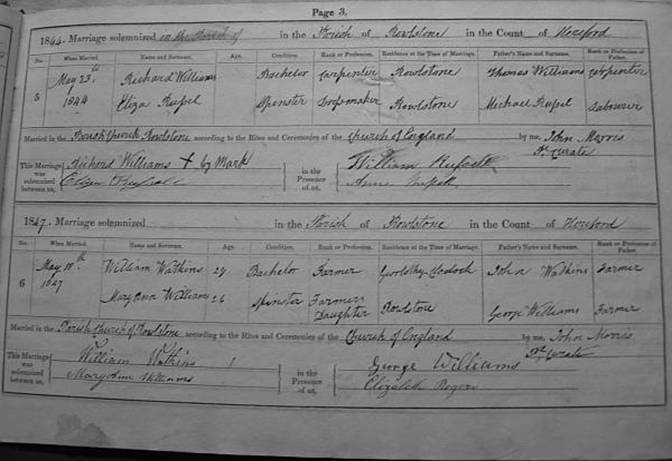 Page 3.
1844. Marriage solemnized in the Parish of in the Parish of Rowlstone in the County of Hereford
No. When Married. Name and Surname. Age. Condition. Rank or Profession. Residence at the Time of Marriage. Father's Name and Surname. Rank or Profession of Father.
May 23d Richard Williams Bachelor Carpenter Rowlstone Thomas Williams Carpenter
5
1844 Eliza Spinster Rowlstone Michael Labourer
Married in the Parish Church Rowlstone according to the Rites and Ceremonies of the Church of England by me, John Morris
Pl. Curate
This Marriage was solemnized between us, Richard Williams X by Mark in the Presence of us, William
Anne
1847. Marriage solemnized in the Parish of Rowlstone in the County of Hereford
No. When Married. Name and Surname. Age. Condition. Rank or Profession. Residence at the Time of Marriage. Father's Name and Surname. Rank or Profession of Father.
May 10th William Watkins 27 Bachelor Farmer Clodock John Watkins Farmer
6
1847 Mary Ann Williams 26 Spinster Farmers Daughter Rowlstone George Williams Farmer
Married in the Parish Church of Rowlstone according to the Rites and Ceremonies of the Church of England by me, John Morris
Pl. Curate
This Marriage was solemnized between us, William Watkins in the Presence of us, George Williams
Mary Ann Williams Elizabeth Rogers